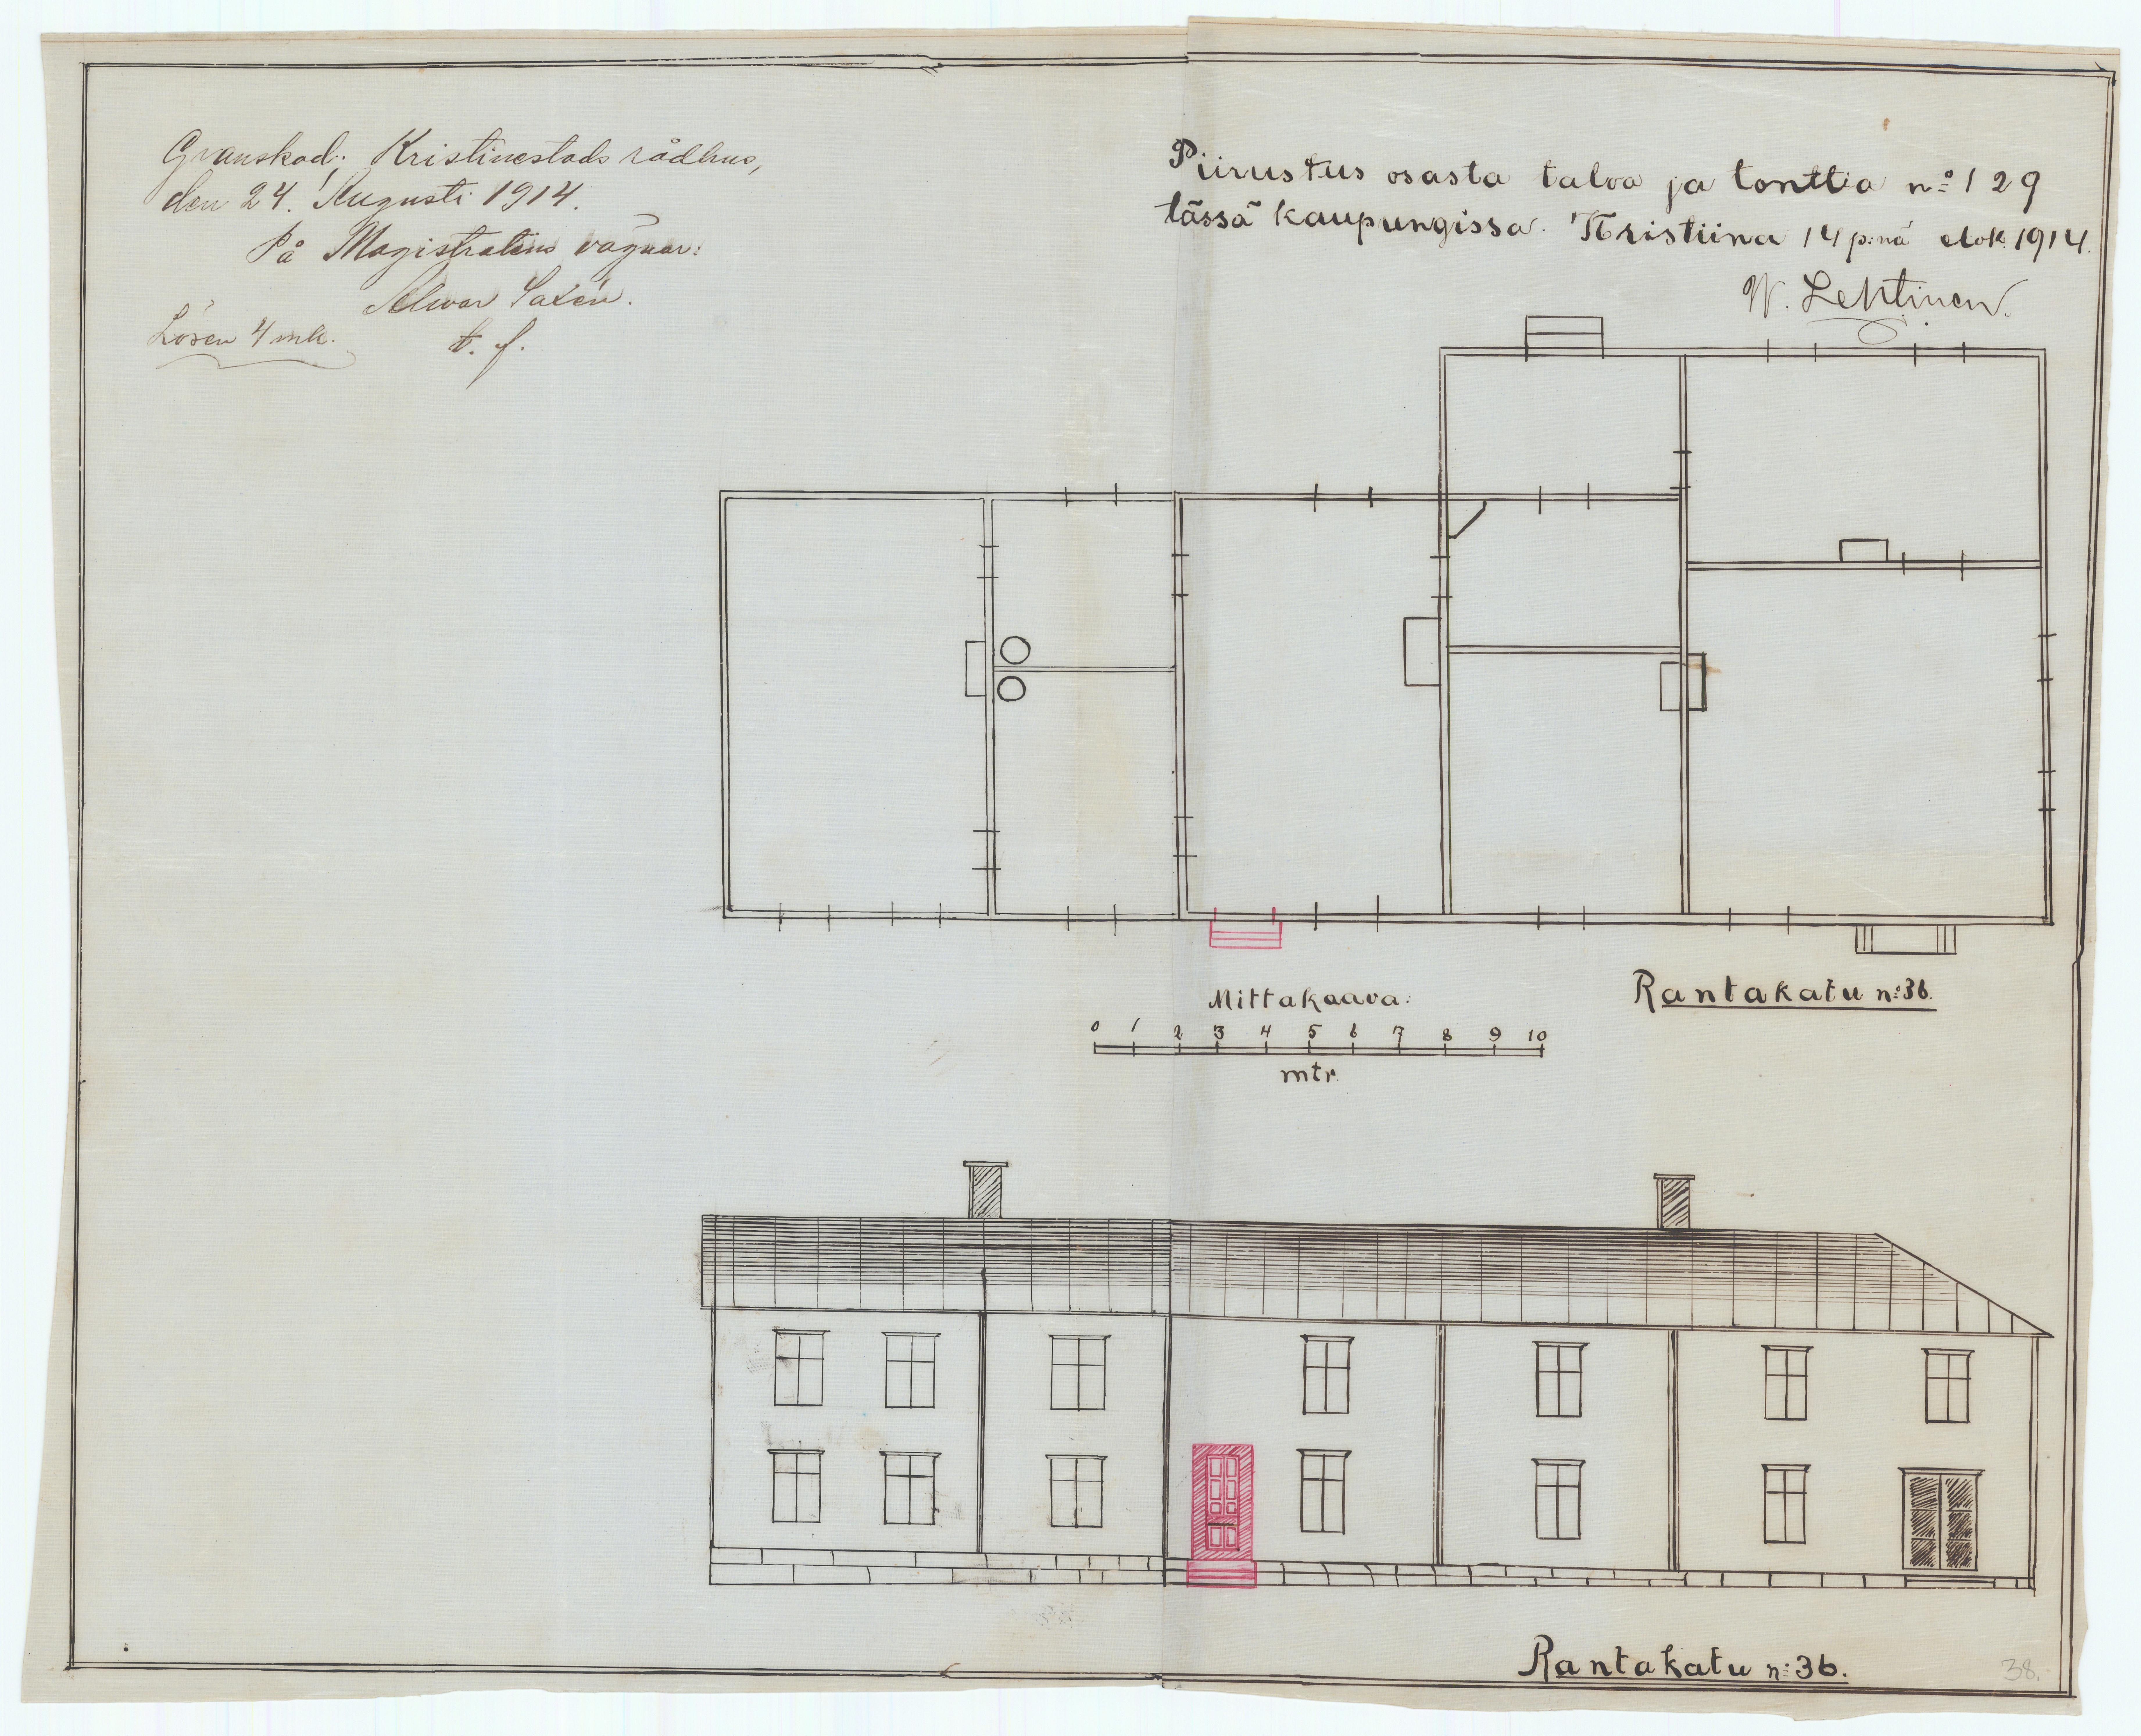 Granskad; Kristinestads rådhus,
den 24. Augusti 1914.
På Magistratens vägnar:
Selwar Saxén.
Lösen 4 mk.
t. f.
Piirustus osasta taloa ja tonttia nº 129
tässä kaupungissa. Kristiina 14 p:nä elok. 1914.
W. Lehtinen.
Rantakatu n:36.
Mittakaava:
0 1 2 3 4 5 6 7 8 9 10
mtr.
Rantakatu n:36.
38.